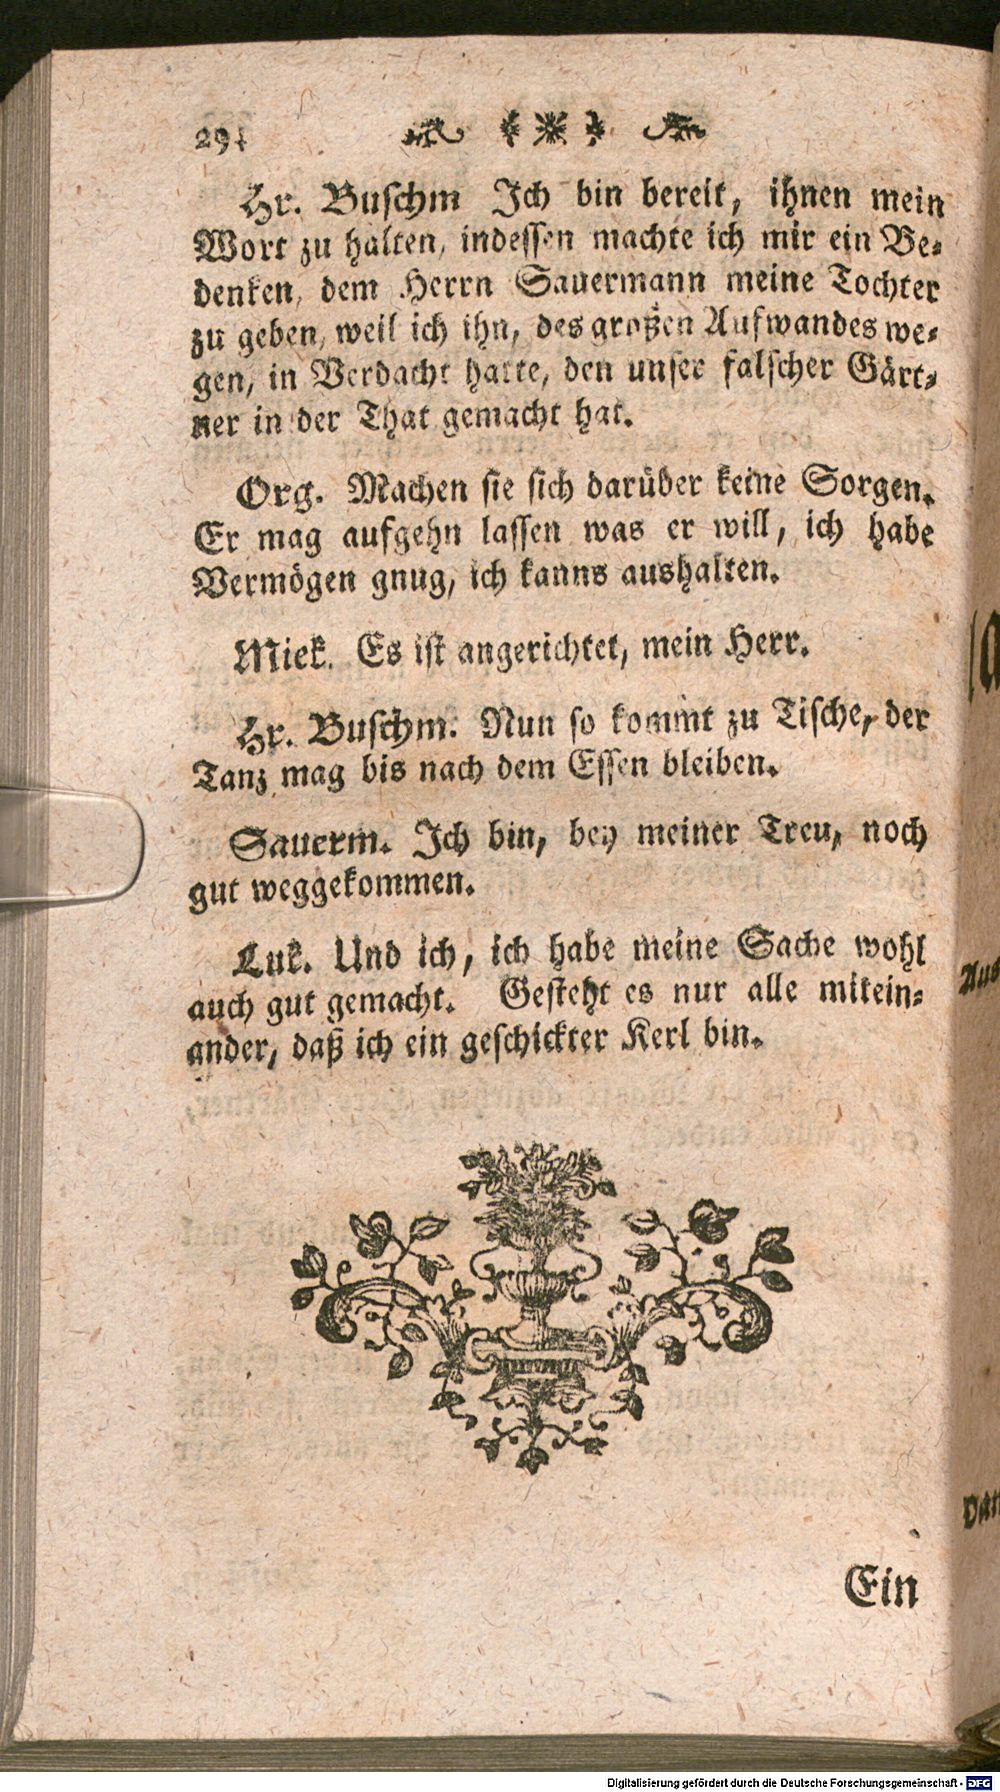 294
Hr. Buschm Ich bin bereit, ihnen mein
Wort zu halten, indessen machte ich mir ein Be-
denken, dem Herrn Sauermann meine Tochter
zu geben, weil ich ihn, des großen Aufwandes we-
gen, in Verdacht hatte, den unser falscher Gärt-
ner in der That gemacht hat.
Org. Machen sie sich darüber keine Sorgen.
Er mag aufgehn lassen was er will, ich habe
Vermögen gnug, ich kanns aushalten.
Miek. Es ist angerichtet, mein Herr.
Hr. Buschm. Nun so kommt zu Tische, der
Tanz mag bis nach dem Essen bleiben.
Sauerm. Ich bin, bey meiner Treu, noch
gut weggekommen.
Luk. Und ich, ich habe meine Sache wohl
auch gut gemacht. Gesteht es nur alle mitein-
ander, daß ich ein geschickter Kerl bin.
Ein
Digitalisierung gefördert durch die Deutsche Forschungsgemeinschaft - DFG